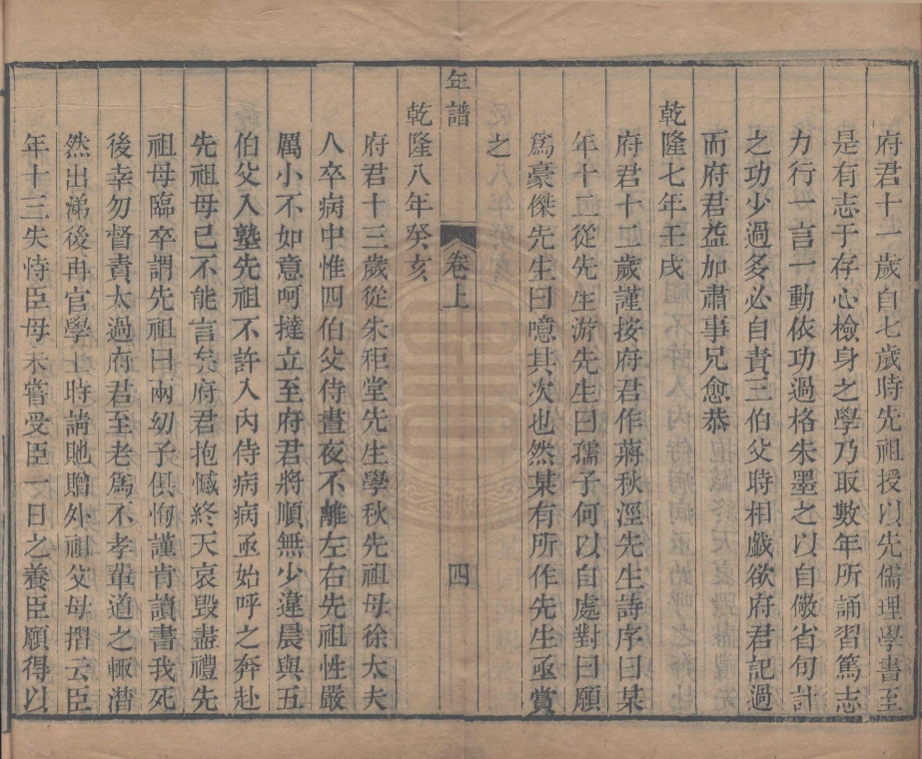 府君十一歲自七歲時先祖授以先儒理學書至
是有志于存心檢身之學乃取數年所誦習篤志
力行一言一動依功過格朱墨之以自儆省旬計
之功少過多必自責三伯父時相戲欲府君記過
而府君益加肅事兄愈恭
乾隆七年壬戌
府君十二歲謹按府君作蔣秋涇先生詩序曰某
年十二從先生游先生曰孺子何以自處對曰願
爲豪傑先生曰噫其次也然某有所作先生亟賞
之
年譜 卷上 四
乾隆八年癸亥
府君十三歲從朱秬堂先生學秋先祖母徐太夫
人卒病中惟四伯父侍晝夜不離左右先祖性嚴
厲小不如意呵撻立至府君將順無少違晨與五
伯父入塾先祖不許入內侍病病亟始呼之奔赴
先祖母已不能言矣府君抱憾終天哀毀盡禮先
祖母臨卒謂先祖曰兩幼子俱恂謹肯讀書我死
後幸勿督責太過府君至老爲不孝輩道之輒潸
然出涕後再官學士時請貤贈外祖父母摺云臣
年十三失恃臣母未嘗受臣一日之養臣願得以